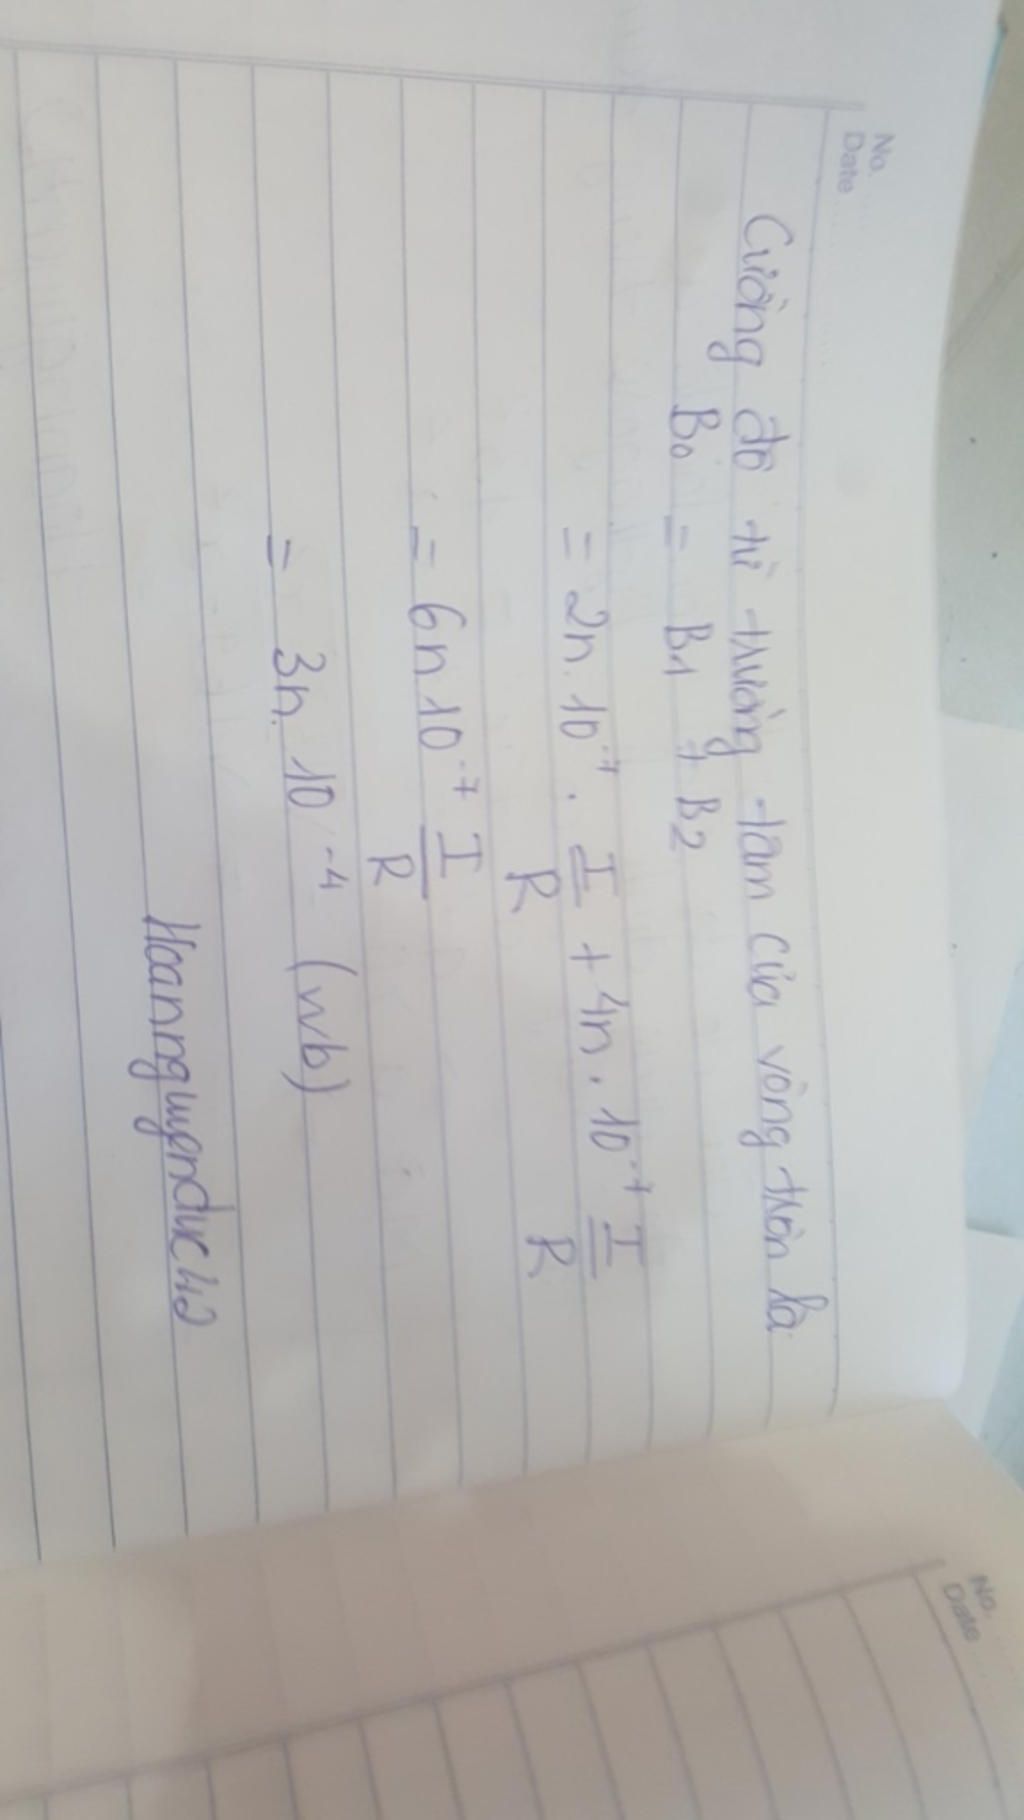 No.
Date
Cường độ từ trường tâm của vòng tròn là
B₀ = B₁ + B₂
= 2π.10⁻⁷ . I/R + 4π . 10⁻⁷ I/R
= 6π 10⁻⁷ I/R
= 3π. 10⁻⁴ (wb)
Hoangnguyenduc
No.
Date